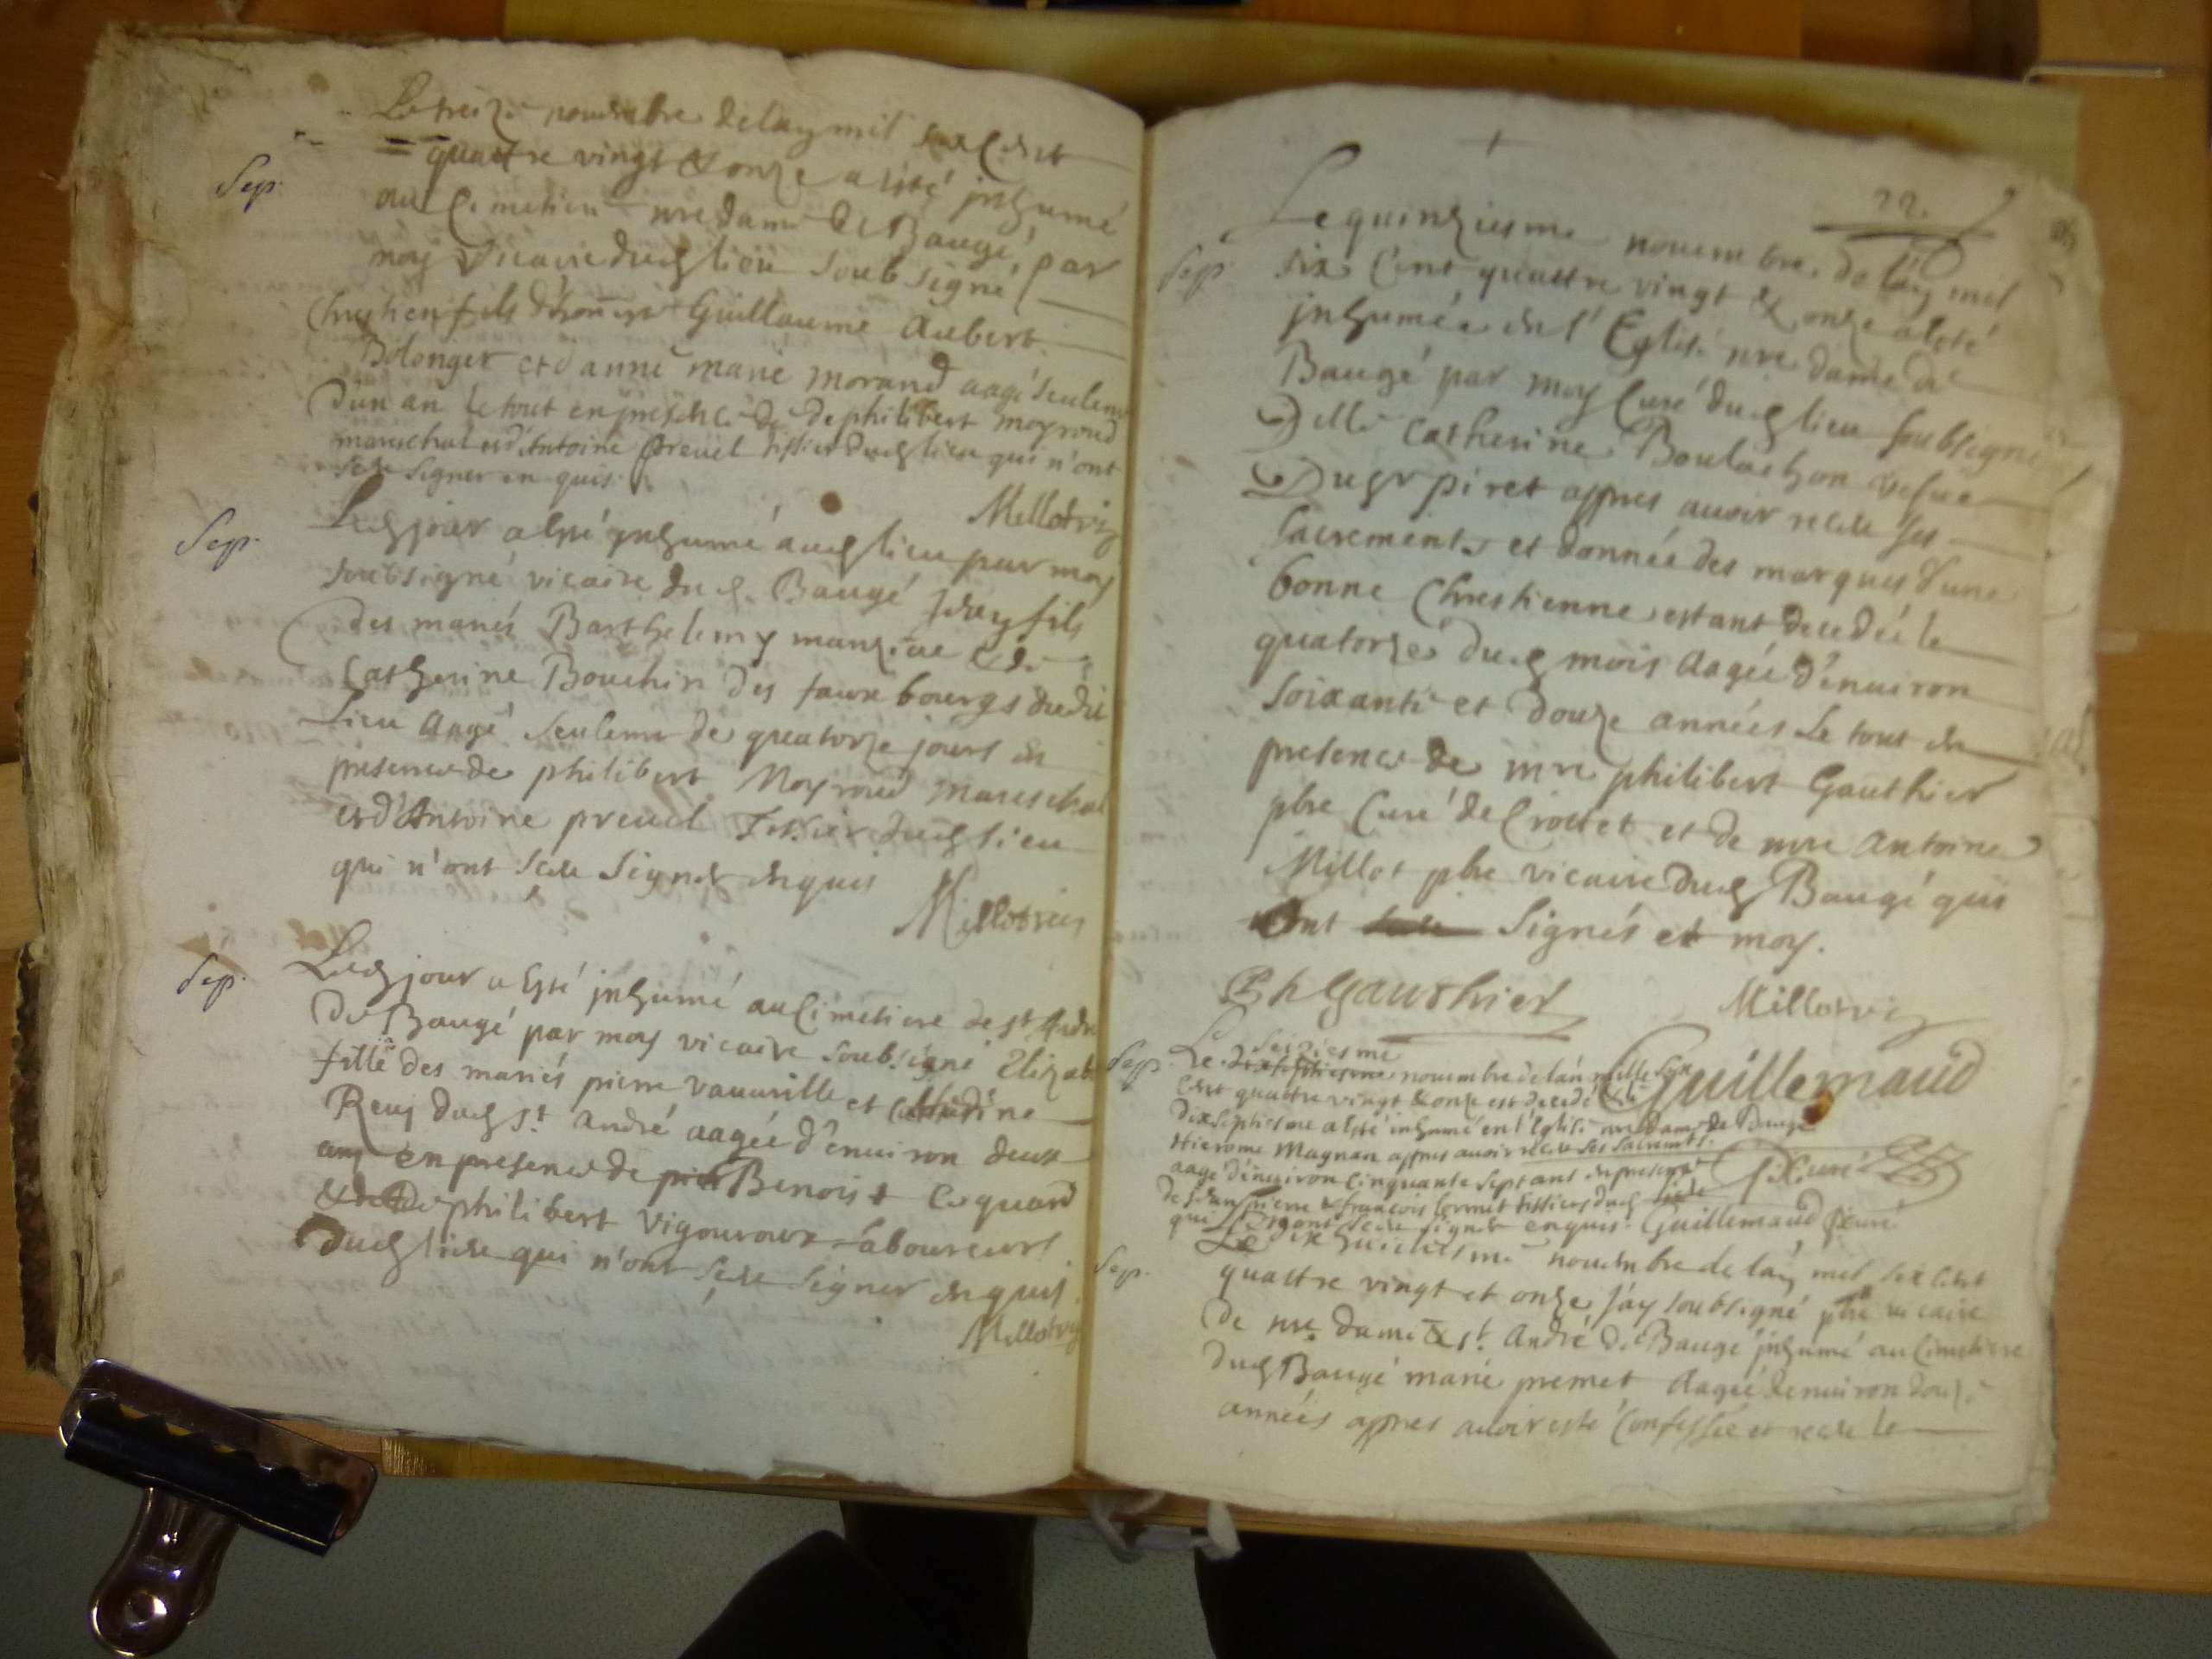 Le treize novembre de lan mil six cent
quattre vingt & onze a esté inhumé
Sep.
au Cimetiere nre dame de Baugé, par
moy vicaire dud lieu soub signé
fils d'honneste Guillaume Aubert
Bolonger et d'anne marie morand aagé seulemt
d'un an le tout en presence de philibert moyroud
mareschal et d'Antoine preuel tissier dud lieu qui n'ont
sceu signer enquis
Millot vic
Sep.
Led jour a esté inhumé aud lieu par moy
soubsigné vicaire dud Baugé fils
des mariés Barthelemy et de
Catherine Bouchin des faux bourgs dudit
Lieu Aagé seulemt de quatorze jours en
presence de philibert Moyroud mareschal
et d'Antoine preuel Tissier dud lieu
qui n'ont sceu signer enquis
Millot vic
Sep.
Led jour a esté inhumé au Cimetiere de st Andre
de Baugé par moy vicaire soubsigné Elizab
fille des mariés pierre vauurille et Claudine
Reuy dud st. André aagée d'enuiron deux
ans en presence de Benoist Coquard
& de philibert vigouroux laboureurs
dud lieu qui n'ont sceu signer enquis
Millot vic
22.
Le quinziesme nouembre de lan mil
Sep.
six Cent quattre vingt & onze a esté
inhumée en l'Eglise nre dame de
Baugé par moy Curé dud lieu soubsigné
Delle Catherine Boulachon vefue
Du Sr piret appres auoir receu ses
sacrements et donnée des marques d'une
bonne Chrestienne estant decedée le
quatorze dud mois Aagée d'enuiron
soixante et douze années Le tout en
presence de mre philibert Gauthier
pbre Curé de Crottet et de mre Antoine
Millot pbre vicaire dud Baugé qui
ont signés et moy.
Ph Gauthier
Millot vic
Guillemaud
P. Curé
Sep.
seiziesme
Le nouembre de lan mille six
Cent quattre vingt & onze est decedé & le
dixseptiesme a esté inhumé en l'Eglise nre dame de Baugé
Hierome Magnan appres auoir receu ses sacremts.
aagé d'enuiron Cinquante sept ans en presence
de Jean pierre & francois Cormet tissiers dud
qui n'ont sceu signer enquis. Guillemaud p curé
Sep.
Le dix huictiesme nouembre de lan mil six Cent
quattre vingt et onze j'ay soubsigné pbre vicaire
de nre dame & st. André de Baugé inhumé au Cimetiere
dud Baugé marie premet Aagée denuiron douze
années appres auoir esté Confessée et receu le